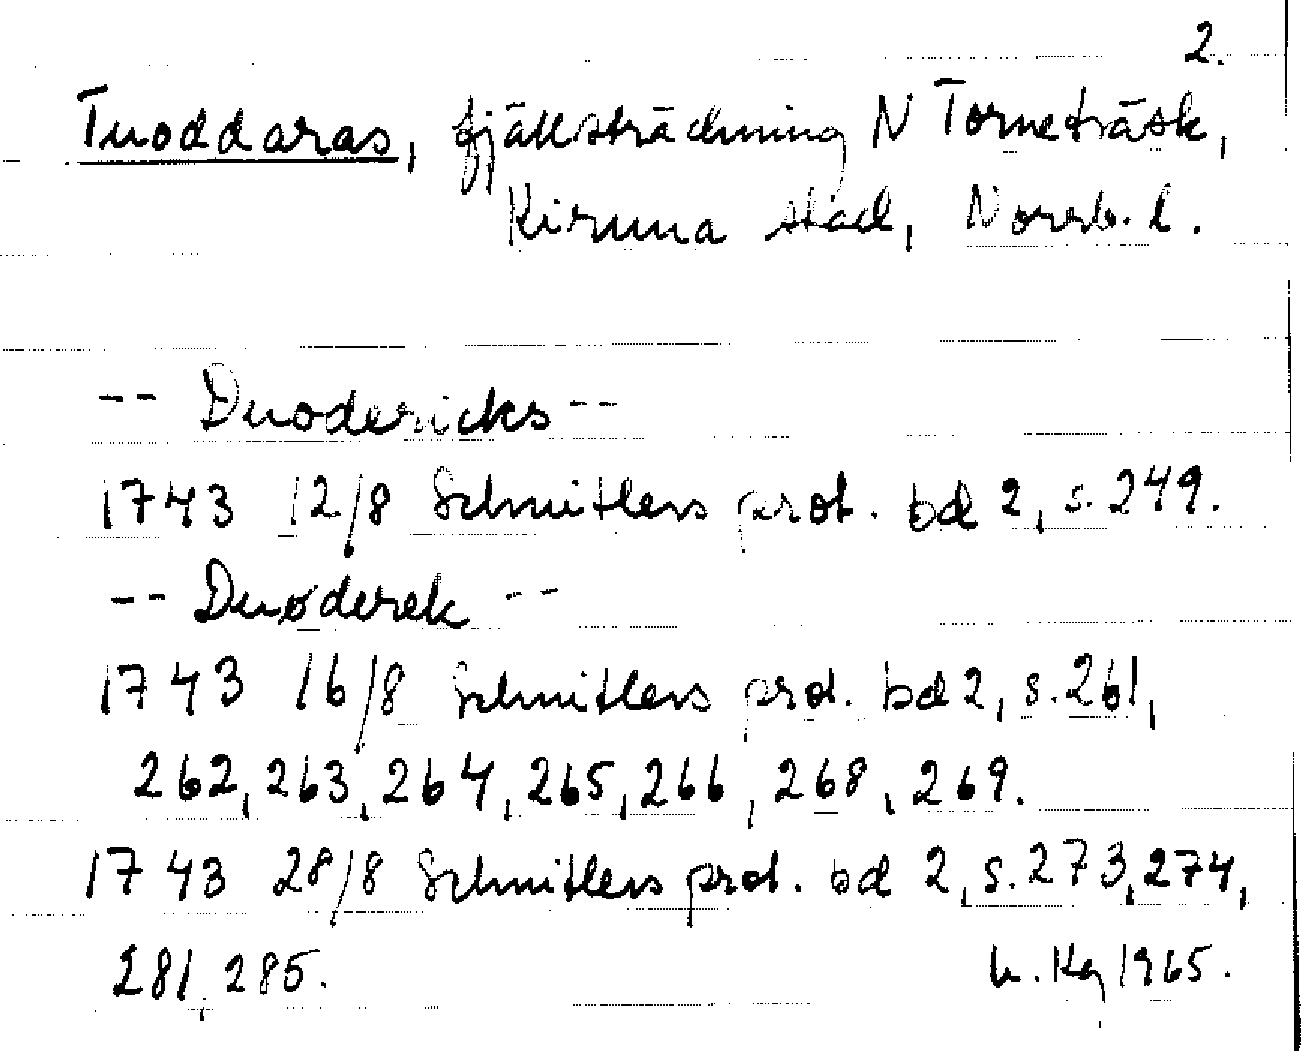 2.
Tuoddaras, fjällsträckning N Torneträsk,
Kiruna stad, Norrb. l.
-- Duodericks --
1743 12/8 Schnitlers prot. bd 2, s. 249.
-- Duøderek --
1743 16/8 Schnitlers prot. bd 2, s. 261,
262, 263, 264, 265, 266, 268, 269.
1743 28/8 Schnitlers prot. bd 2, s. 273, 274,
281, 285. h. Kg 1965.